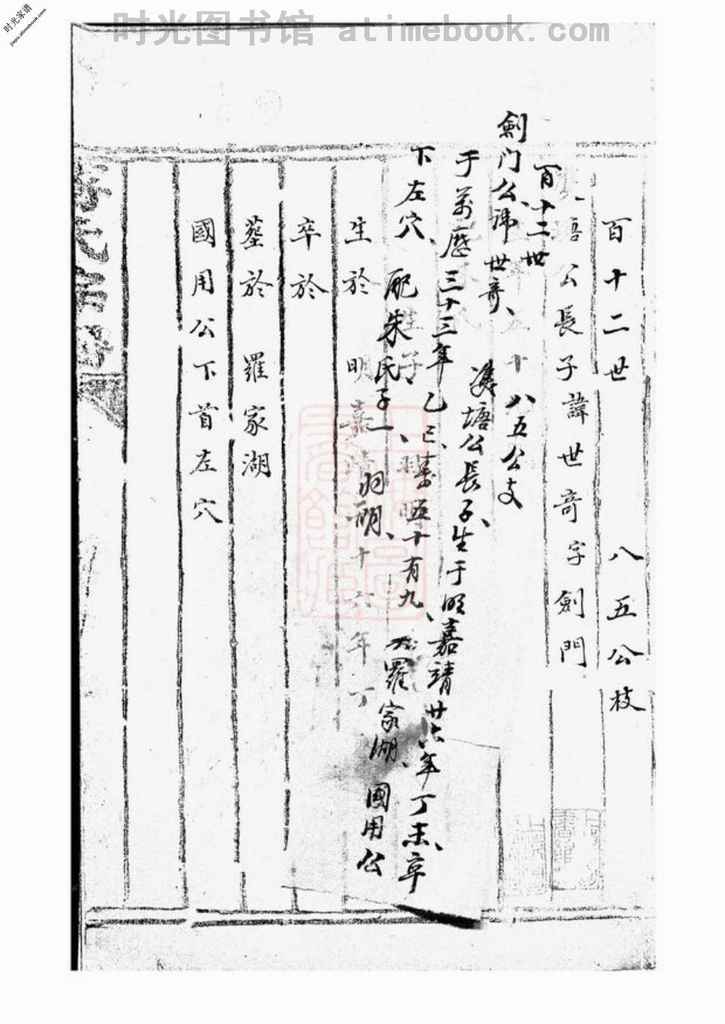 时光图书馆 atimebook.com
时光家谱
百十二世 八五公枝
公長子諱世奇字劍門
百十二世 十八五公支
劍门公諱世奇、塘公長子、生于明嘉靖廿六年丁未、卒
于萬歷三十三年乙巳、壽五十有九、羅家湖、國用公
下左穴、配朱氏、子一、羽朋、
生於 明嘉靖 十六年丁
卒於
墓於 羅家湖
國用公下首左穴